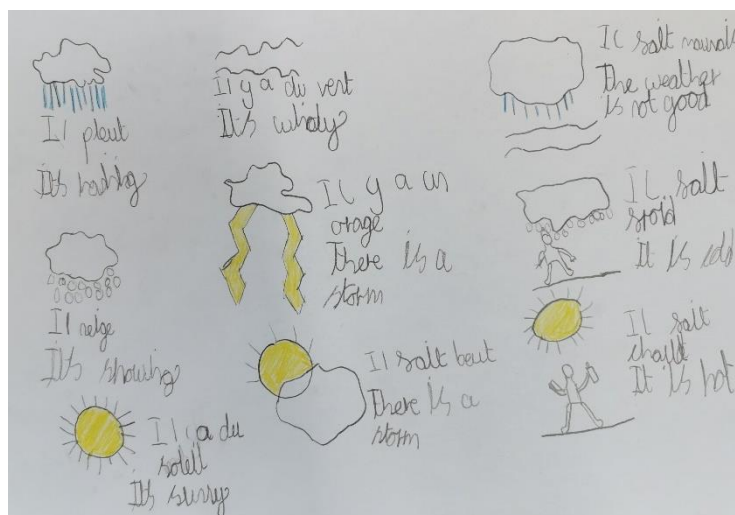 Il pleut
It's
Il neige
It's showing
Il a du
soleil
It's sunny
Il y a du vert
It's windy
Il y a un
orage
There is a
storm
Il sait beut
There is a
storm
Il sait mauvais
The weather
is not good
Il sait
sroid
It is cold
Il sait
chaud
It is hot